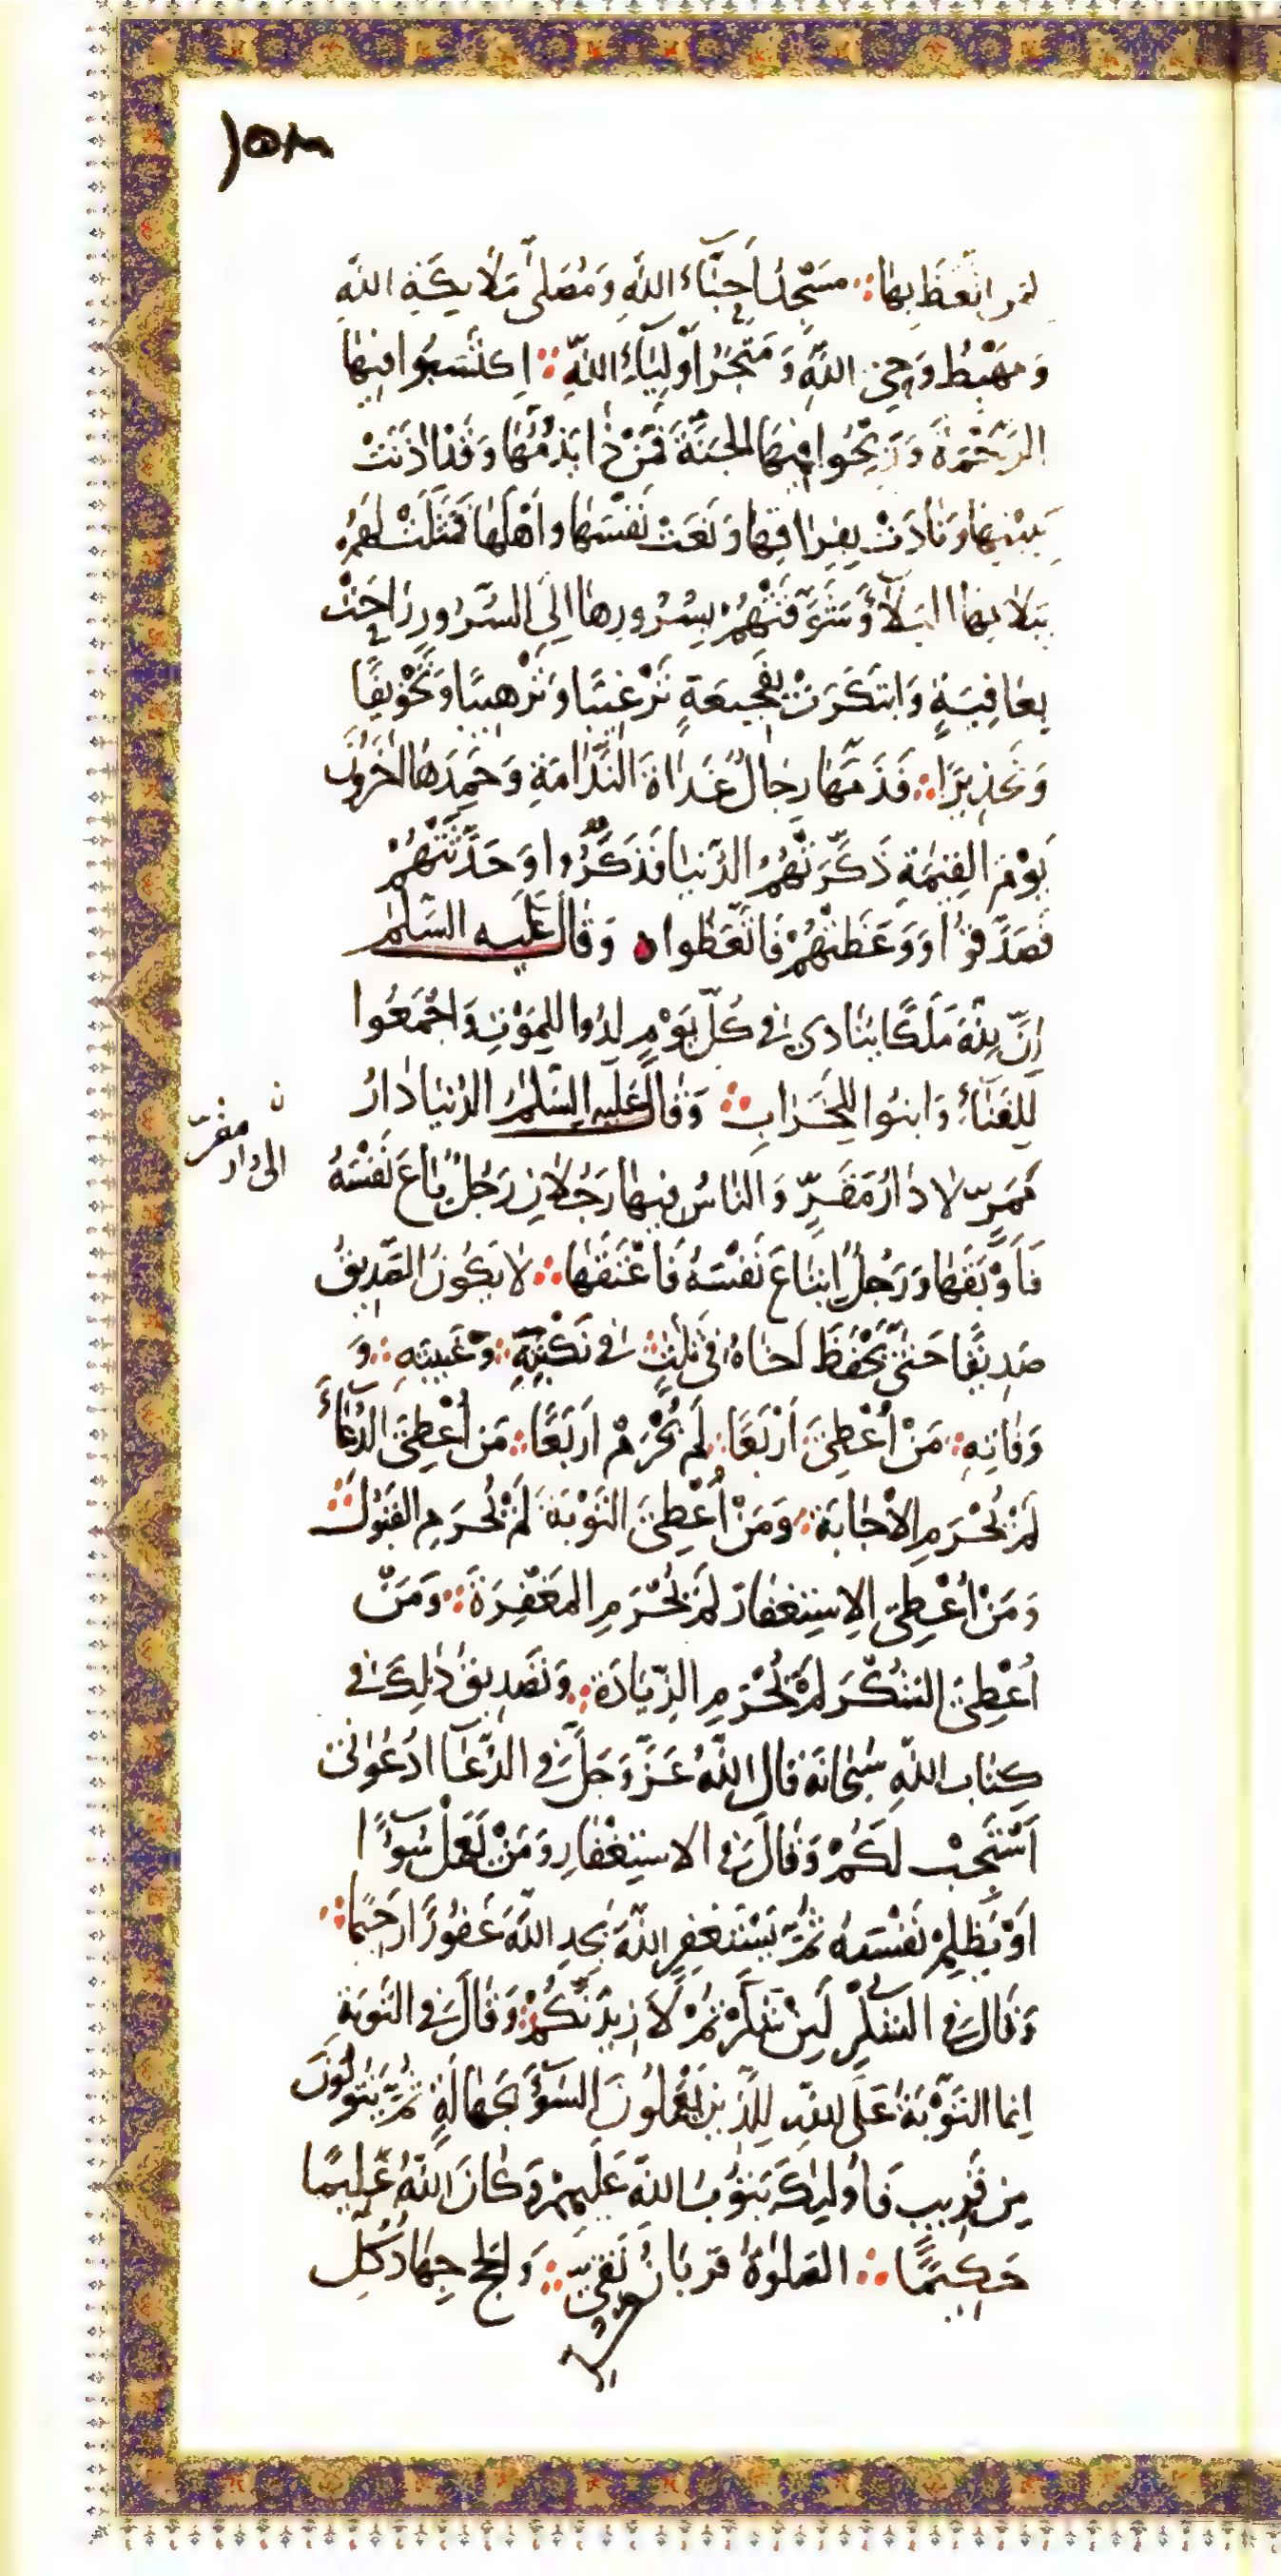 ١٥٨
لمن اتعظ بها ∴ مَسْجِدُ اَحِبَّآءِ اللهِ وَ مُصَلّٰى مَلَائِكَةِ اللهِ
وَ مَهْبِطُ وَحْيِ اللهِ وَ مَتْجَرُ اَوْلِيَآءِ اللهِ ∴ اِكْتَسَبُوا فِيهَا
الرَّحْمَةَ وَ رَبِحُوا فِيهَا الْجَنَّةَ فَمَنْ ذَا يَذُمُّهَا وَ قَدْ اٰذَنَتْ
بِبَيْنِهَا وَ نَادَتْ بِفِرَاقِهَا وَ نَعَتْ نَفْسَهَا وَ اَهْلَهَا فَمَثَّلَتْ لَهُمْ
بِبَلَائِهَا الْبَلَآءَ وَ شَوَّقَتْهُمْ بِسُرُورِهَا اِلَى السُّرُورِ رَاحَتْ
بِعَافِيَةٍ وَ ابْتَكَرَتْ بِفَجِيعَةٍ تَرْغِيبًا وَ تَرْهِيبًا وَ تَخْوِيفًا
وَ تَحْذِيرًا ∴ فَذَمَّهَا رِجَالٌ غَدَاةَ النَّدَامَةِ وَ حَمِدَهَا اٰخَرُونَ
يَوْمَ الْقِيٰمَةِ ذَكَّرَتْهُمُ الدُّنْيَا فَذَكَّرُوا وَ حَدَّثَتْهُمْ
فَصَدَّقُوا وَ وَعَظَتْهُمْ فَاتَّعَظُوا وَ قَالَ عَلَيهِ السَّلٰمُ
اِنَّ لِلّٰهِ مَلَكًا يُنَادِي فِي كُلِّ يَوْمٍ لِدُوا لِلْمَوْتِ وَ اجْمَعُوا
لِلْفَنَآءِ وَ ابْنُوا لِلْخَرَابِ ∴ وَ قَالَ عَلَيهِ السَّلٰمُ الدُّنْيَا دَارُ
مَمَرٍّ لَا دَارُ مَقَرٍّ وَ النَّاسُ فِيهَا رَجُلَانِ رَجُلٌ بَاعَ نَفْسَهُ
ن
الى دار مقرّ
فَاَوْبَقَهَا وَ رَجُلٌ اِبْتَاعَ نَفْسَهُ فَاَعْتَقَهَا ∴ لَا يَكُونُ الصَّدِيقُ
صَدِيقًا حَتّٰى يَحْفَظَ اَخَاهُ فِي ثَلٰثٍ ∴ فِي نَكْبَتِهِ ∴ وَ غَيْبَتِهِ ∴ وَ
وَفَاتِهِ ∴ مَنْ اُعْطِيَ اَرْبَعًا ∴ لَمْ يُحْرَمْ اَرْبَعًا ∴ مَنْ اُعْطِيَ الدُّعَآءَ
لَمْ يُحْرَمِ الْاِجَابَةَ ∴ وَ مَنْ اُعْطِيَ التَّوْبَةَ لَمْ يُحْرَمِ الْقَبُولَ ∴
وَ مَنْ اُعْطِيَ الْاِسْتِغْفَارَ لَمْ يُحْرَمِ الْمَغْفِرَةَ ∴ وَ مَنْ
اُعْطِيَ الشُّكْرَ لَمْ يُحْرَمِ الزِّيَادَةَ ∴ وَ تَصْدِيقُ ذٰلِكَ فِي
كِتَابِ اللهِ سُبْحَانَهُ قَالَ اللهُ عَزَّ وَ جَلَّ فِي الدُّعَآءِ ادْعُونِي
اَسْتَجِبْ لَكُمْ وَ قَالَ فِي الْاِسْتِغْفَارِ وَ مَنْ يَعْمَلْ سُوٓءًا
اَوْ يَظْلِمْ نَفْسَهُ ثُمَّ يَسْتَغْفِرِ اللهَ يَجِدِ اللهَ غَفُورًا رَحِيمًا ∴
وَ قَالَ فِي الشُّكْرِ لَئِنْ شَكَرْتُمْ لَاَزِيدَنَّكُمْ ∴ وَ قَالَ فِي التَّوْبَةِ
اِنَّمَا التَّوْبَةُ عَلَى اللهِ لِلَّذِينَ يَعْمَلُونَ السُّوٓءَ بِجَهَالَةٍ ثُمَّ يَتُوبُونَ
مِنْ قَرِيبٍ فَاُولٰئِكَ يَتُوبُ اللهُ عَلَيْهِمْ وَ كَانَ اللهُ عَلِيمًا
حَكِيمًا ∴ الصَّلٰوةُ قُرْبَانُ كُلِّ تَقِيٍّ ∴ وَ الْحَجُّ جِهَادُ كُلِّ